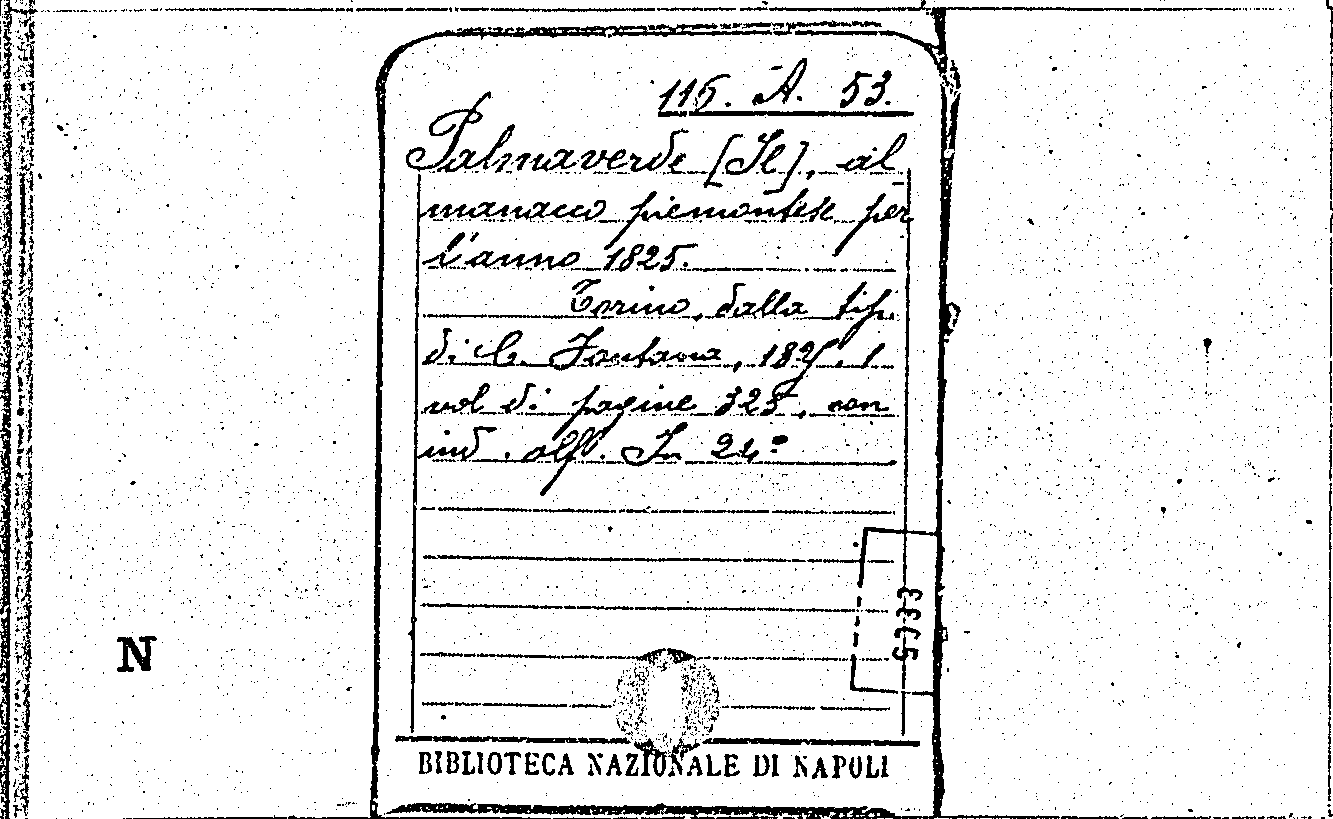 115. A. 53.
Palmaverde [Il], al
manacco piemontese per
l'anno 1825.
Torino, dalla tip.
di C. Fontana, 1825. 1
vol di pagine 323, con
ind. alf. In 24°
N
BIBLIOTECA NAZIONALE DI NAPOLI